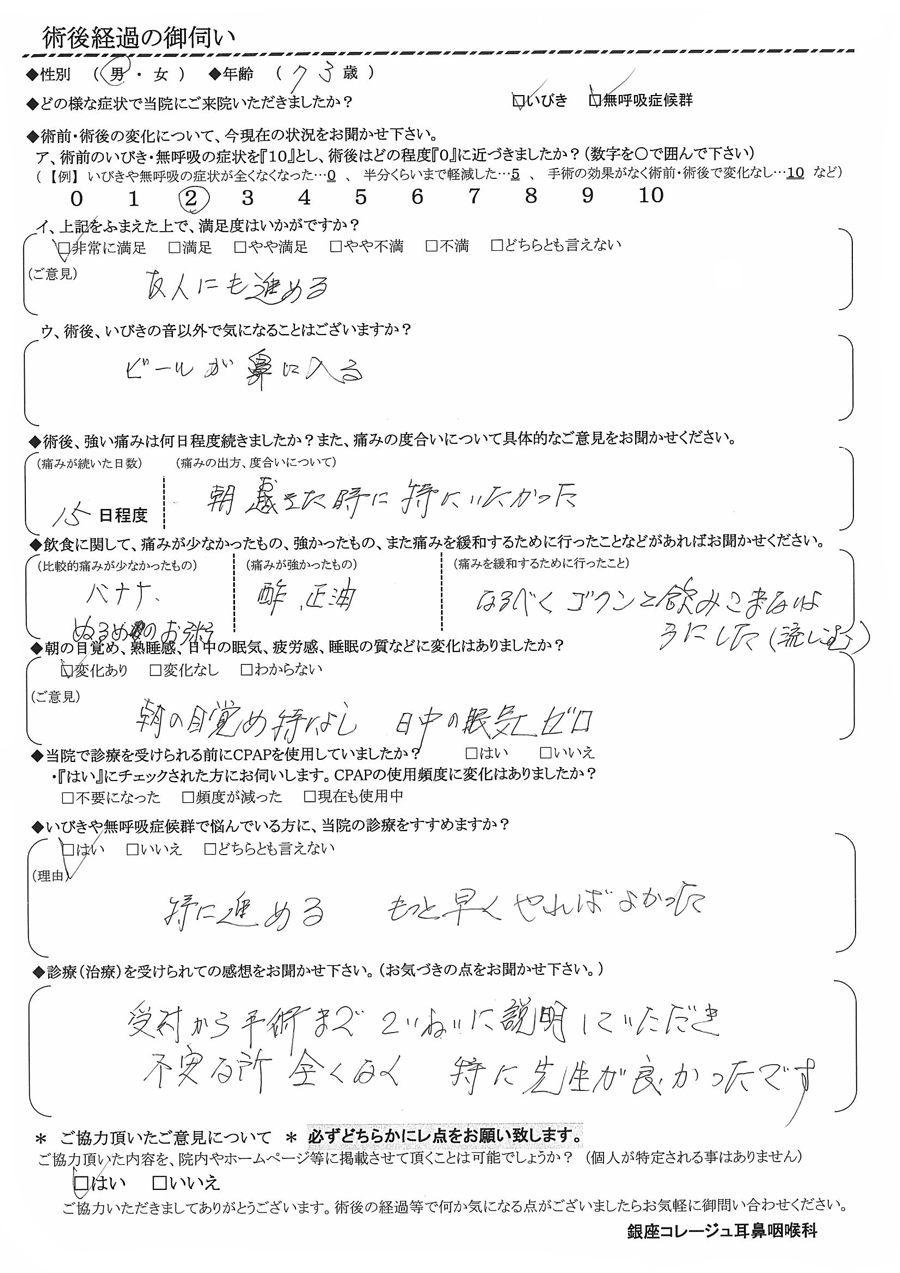 術後経過の御伺い
◆性別 （ 男 ・ 女 ） ◆年齢 （ 73 歳 ）
◆どの様な症状で当院にご来院いただきましたか？ ☑いびき ☑無呼吸症候群
◆術前・術後の変化について、今現在の状況をお聞かせ下さい。
ア、術前のいびき・無呼吸の症状を『10』とし、術後はどの程度『0』に近づきましたか？（数字を○で囲んで下さい）
（ 【例】 いびきや無呼吸の症状が全くなくなった…0 、 半分くらいまで軽減した…5 、 手術の効果がなく術前・術後で変化なし…10 など）
0 1 2 3 4 5 6 7 8 9 10
イ、上記をふまえた上で、満足度はいかがですか？
☑非常に満足 □満足 □やや満足 □やや不満 □不満 □どちらとも言えない
（ご意見）
友人にも進める
ウ、術後、いびきの音以外で気になることはございますか？
ビールが鼻に入る
◆術後、強い痛みは何日程度続きましたか？また、痛みの度合いについて具体的なご意見をお聞かせください。
（痛みが続いた日数） （痛みの出方、度合いについて）
15 日程度 朝おきた時に特にいたかった
◆飲食に関して、痛みが少なかったもの、強かったもの、また痛みを緩和するために行ったことなどがあればお聞かせください。
（比較的痛みが少なかったもの） （痛みが強かったもの） （痛みを緩和するために行ったこと）
バナナ、 酢、正油 なるべくゴクンと飲みこまないよ
ぬるめのお粥 うにした（流し込む）
◆朝の目覚め、熟睡感、日中の眠気、疲労感、睡眠の質などに変化はありましたか？
☑変化あり □変化なし □わからない
（ご意見）
朝の目覚め特によし 日中の眠気ゼロ
◆当院で診療を受けられる前にCPAPを使用していましたか？ □はい □いいえ
・『はい』にチェックされた方にお伺いします。CPAPの使用頻度に変化はありましたか？
□不要になった □頻度が減った □現在も使用中
◆いびきや無呼吸症候群で悩んでいる方に、当院の診療をすすめますか？
☑はい □いいえ □どちらとも言えない
（理由）
特に進める もっと早くやればよかった
◆診療（治療）を受けられての感想をお聞かせ下さい。（お気づきの点をお聞かせ下さい。）
受付から手術までていねいに説明していただき
不安な所全くなく 特に先生が良かったです
＊ ご協力頂いたご意見について ＊ 必ずどちらかにレ点をお願い致します。
ご協力頂いた内容を、院内やホームページ等に掲載させて頂くことは可能でしょうか？ （個人が特定される事はありません）
☑はい □いいえ
ご協力いただきましてありがとうございます。術後の経過等で何か気になる点がございましたらお気軽に御問い合わせください。
銀座コレージュ耳鼻咽喉科